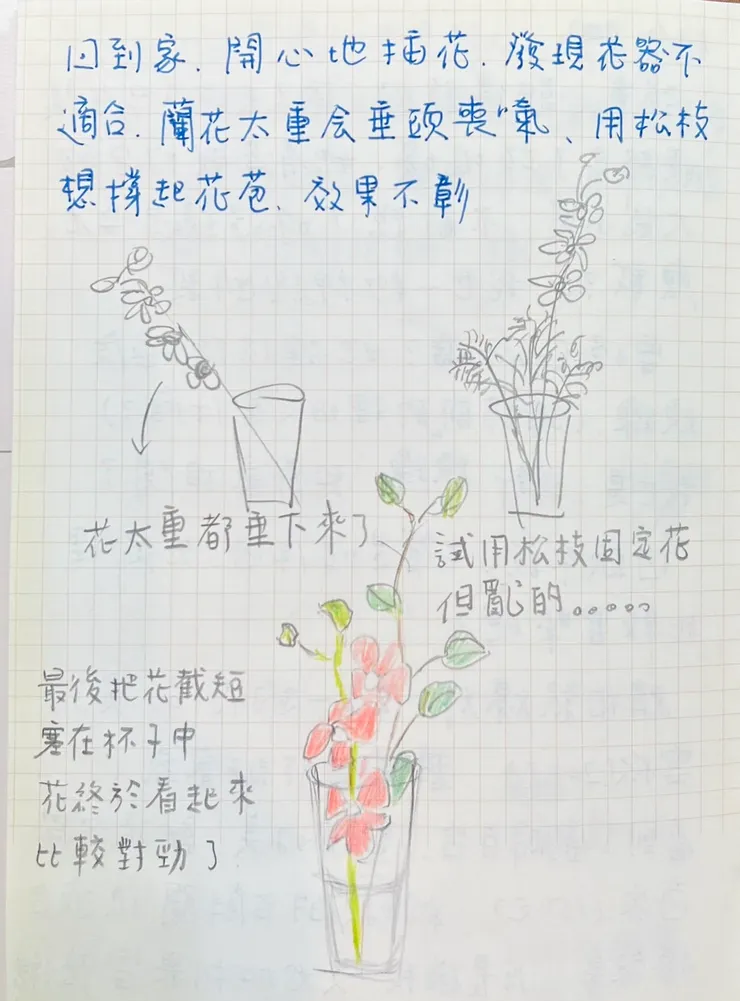 回到家、開心地插花、發現花器不
適合、蘭花太重会垂頭喪氣、用松枝
想撐起花苞、效果不彰
花太重都垂下來了
試用松枝固定花
但亂亂的.....
最後把花截短
塞在杯子中
花終於看起來
比較對勁了